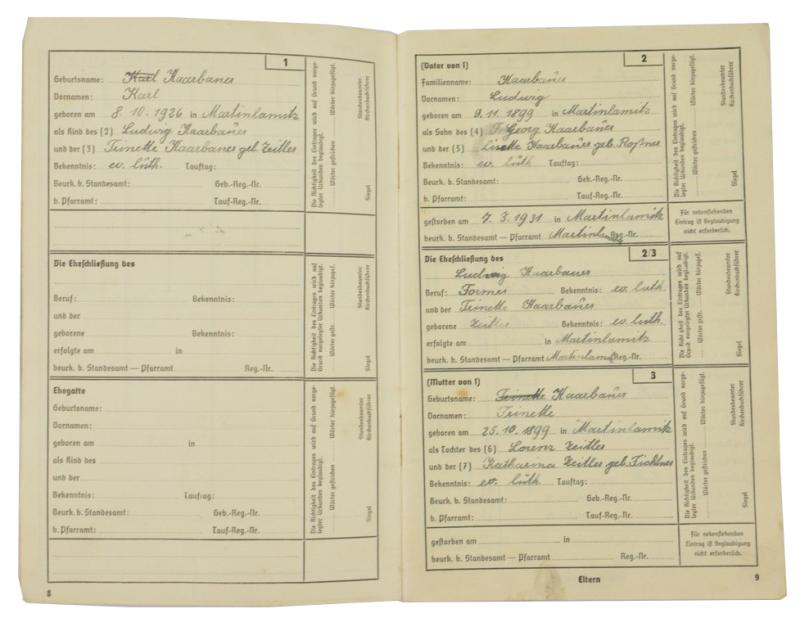 1
Geburtsname: Karl Haarbauer
Vornamen: Karl
geboren am 8. 10. 1926 in Martinlamitz
als Kind des (2) Ludwig Haarbauer
und der (3) Trinette Haarbauer geb. Zeitler
Bekenntnis: ev. luth. Tauftag:
Beurk. b. Standesamt: Geb.-Reg.-Nr.
b. Pfarramt: Tauf-Reg.-Nr.
Die Richtigkeit des Eintrages wird auf Grund vorge-
legter Urkunden beglaubigt.
Wörter hinzugefügt.
Wörter gestrichen
Standesbeamter
Kirchenbuchführer
Siegel
Die Eheschließung des
Beruf: Bekenntnis:
und der
geborene Bekenntnis:
erfolgte am in
beurk. b. Standesamt — Pfarramt Reg.-Nr.
Die Richtigkeit des Eintrages wird auf
Grund vorgelegter Urkunden beglaubigt.
Wörter hinzugef.
Wörter gestr.
Standesbeamter
Kirchenbuchführer
Siegel
Ehegatte
Geburtsname:
Vornamen:
geboren am in
als Kind des
und der
Bekenntnis: Tauftag:
Beurk. b. Standesamt: Geb.-Reg.-Nr.
b. Pfarramt: Tauf-Reg.-Nr.
Die Richtigkeit des Eintrages wird auf Grund vorge-
legter Urkunden beglaubigt.
Wörter hinzugefügt.
Wörter gestrichen
Standesbeamter
Kirchenbuchführer
Siegel
8
(Vater von 1) 2
Familienname: Haarbauer
Vornamen: Ludwig
geboren am 9. 11. 1899 in Martinlamitz
als Sohn des (4) Georg Haarbauer
und der (5) Haarbauer geb. Roßner
Bekenntnis: ev. luth Tauftag:
Beurk. b. Standesamt: Geb.-Reg.-Nr.
b. Pfarramt: Tauf-Reg.-Nr.
Die Richtigkeit des Eintrages wird auf Grund vorge-
legter Urkunden beglaubigt.
Wörter hinzugefügt.
Wörter gestrichen
Standesbeamter
Kirchenbuchführer
Siegel
gestorben am 7. 3. 1931 in Martinlamitz
beurk. b. Standesamt — Pfarramt Reg.-Nr.
Für nebenstehenden
Eintrag ist Beglaubigung
nicht erforderlich.
Die Eheschließung des 2/3
Ludwig Haarbauer
Beruf: Former Bekenntnis: ev. luth.
und der Trinette Haarbauer
geborene Zeitler Bekenntnis: ev. luth.
erfolgte am in Martinlamitz
beurk. b. Standesamt — Pfarramt Reg.-Nr.
Die Richtigkeit des Eintrages wird auf
Grund vorgelegter Urkunden beglaubigt.
Wörter hinzugef.
Wörter gestr.
Standesbeamter
Kirchenbuchführer
Siegel
(Mutter von 1) 3
Geburtsname: Trinette Haarbauer
Vornamen: Trinette
geboren am 25. 10. 1899 in Martinlamitz
als Tochter des (6) Lorenz Zeitler
und der (7) Katharina Zeitler geb.
Bekenntnis: ev. luth Tauftag:
Beurk. b. Standesamt: Geb.-Reg.-Nr.
b. Pfarramt: Tauf-Reg.-Nr.
Die Richtigkeit des Eintrages wird auf Grund vorge-
legter Urkunden beglaubigt.
Wörter hinzugefügt.
Wörter gestrichen
Standesbeamter
Kirchenbuchführer
Siegel
gestorben am in
beurk. b. Standesamt — Pfarramt Reg.-Nr.
Für nebenstehenden
Eintrag ist Beglaubigung
nicht erforderlich.
Eltern 9